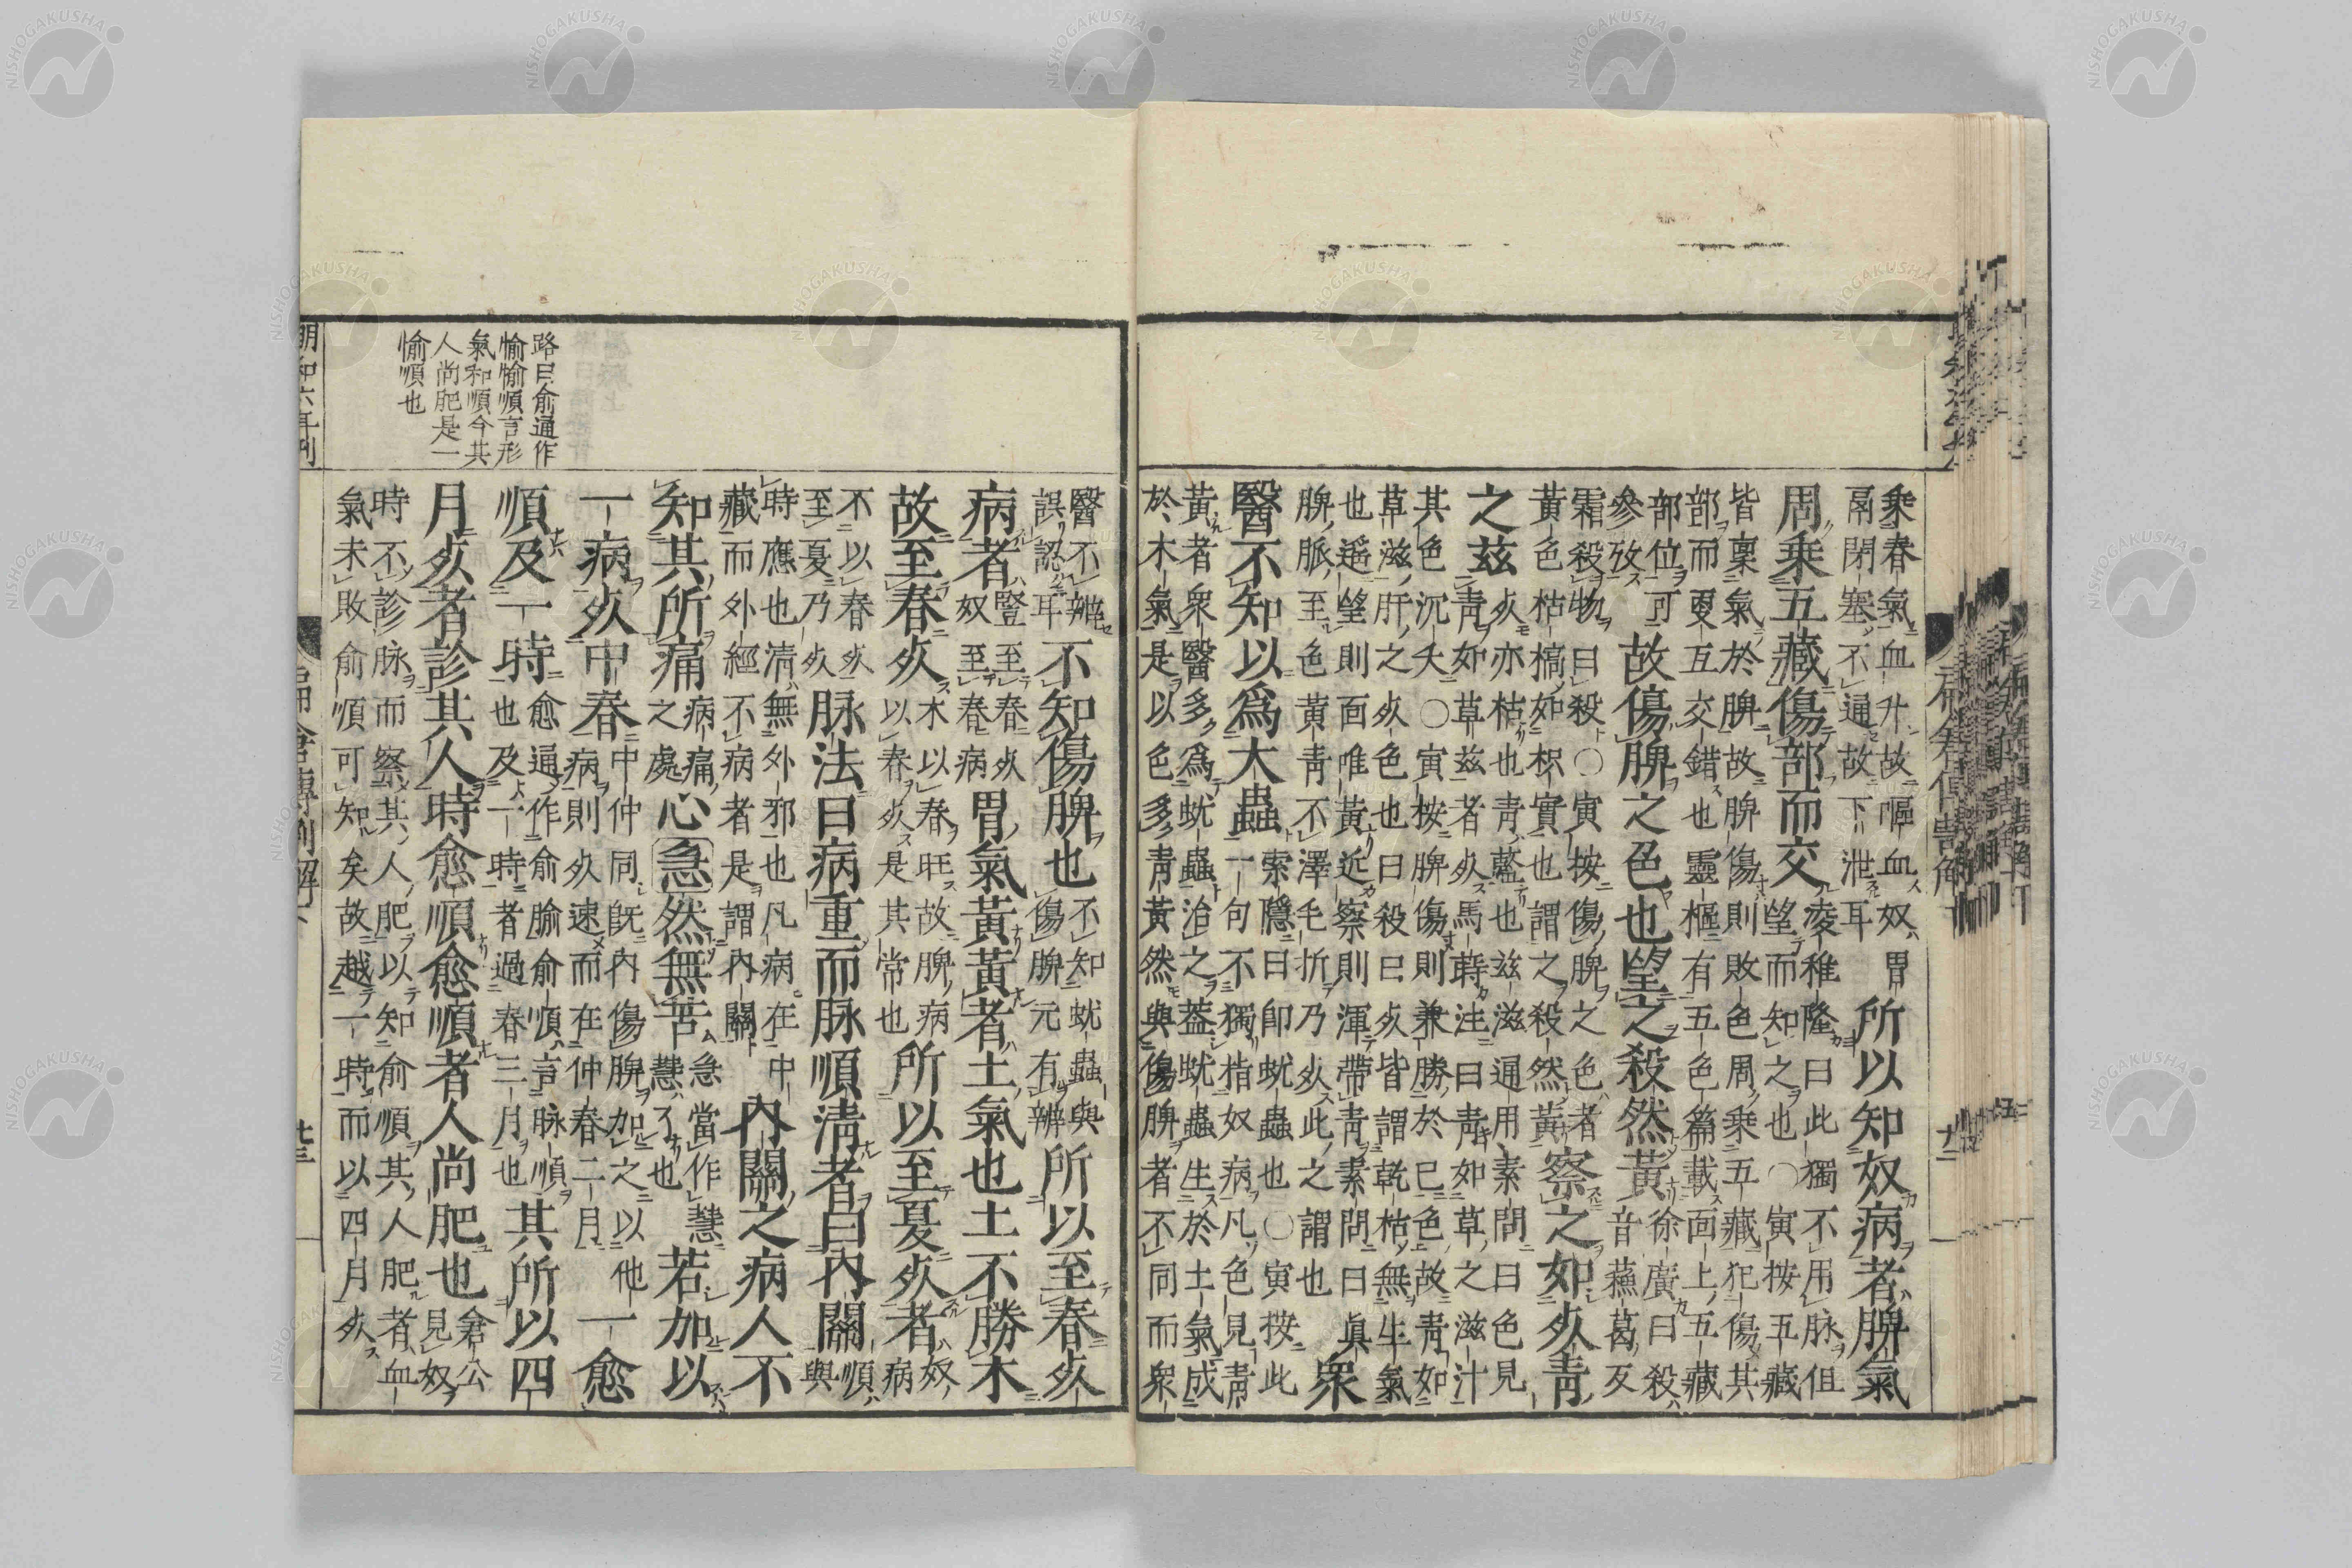 乘春氣血升故嘔血奴胃
鬲閉塞不通故下泄耳
所以知奴病者脾氣
周乘五藏傷部而交
凌稚隆曰此獨不用脉但
望而知之也〇寅按五藏
皆稟氣於脾故脾傷則敗色周乘五藏犯傷其
部而更互交錯也靈樞有五色篇載面上五藏
部位可
參攷
故傷脾之色也望之殺然黃
徐廣曰殺
音蘇葛反
霜殺物曰殺〇寅按傷脾之色者
黃色枯槁如枳實也謂之殺然黃
察之如死青
之茲
死亦枯也青藍也茲滋通用素問曰色見
青如草茲者死馬蒔注曰青如草之滋汁
其色沉夭〇寅按脾傷則兼勝於己色故青如
草滋肝之死色也曰殺曰死皆謂乾枯無生氣
也遥望則面唯黃近察則渾帶青素問曰眞
脾脈至色黃青不澤毛折乃死此之謂也
衆
醫不知以爲大蟲
索隱曰卽蚘蟲也〇寅按此
一句不獨指奴病凡色見青
黃者衆醫多爲蚘蟲治之蓋蚘蟲生於土氣成
於木氣是以色多青黃然與傷脾者不同而衆
醫不辨
誤認耳
不知傷脾也
不知蚘蟲與
傷脾元有辨
所以至春死
病者
豎至春死
奴至春病
胃氣黃黃者土氣也土不勝木
故至春死
木以春旺故脾病
以春死是其常也
所以至夏死者
奴
病
不以春死
至夏乃死
脉法曰病重而脉順淸者曰內關
順
與
時應也淸無外邪也凡病在中
藏而外經不病者是謂內關
內關之病人不
知其所痛
病痛
之處
心急然無苦
急當作慧
慧了也
若加以
一病死中春
中仲同旣內傷脾加之以他
病則死速而在仲春二月
一愈
順及一時
愈通作俞腧俞順言脉順
也及一時者過春三月也
其所以四
月死者診其人時愈順愈順者人尚肥也
倉公
見奴
時不診脉而察其人肥以知俞順其人肥者血
氣未敗俞順可知矣故越一時而以四月死
路曰俞通作
愉愉順言形
氣和順今其
人尚肥是一
愉順也
明和六年刊
扁倉傳割解 下
廿三